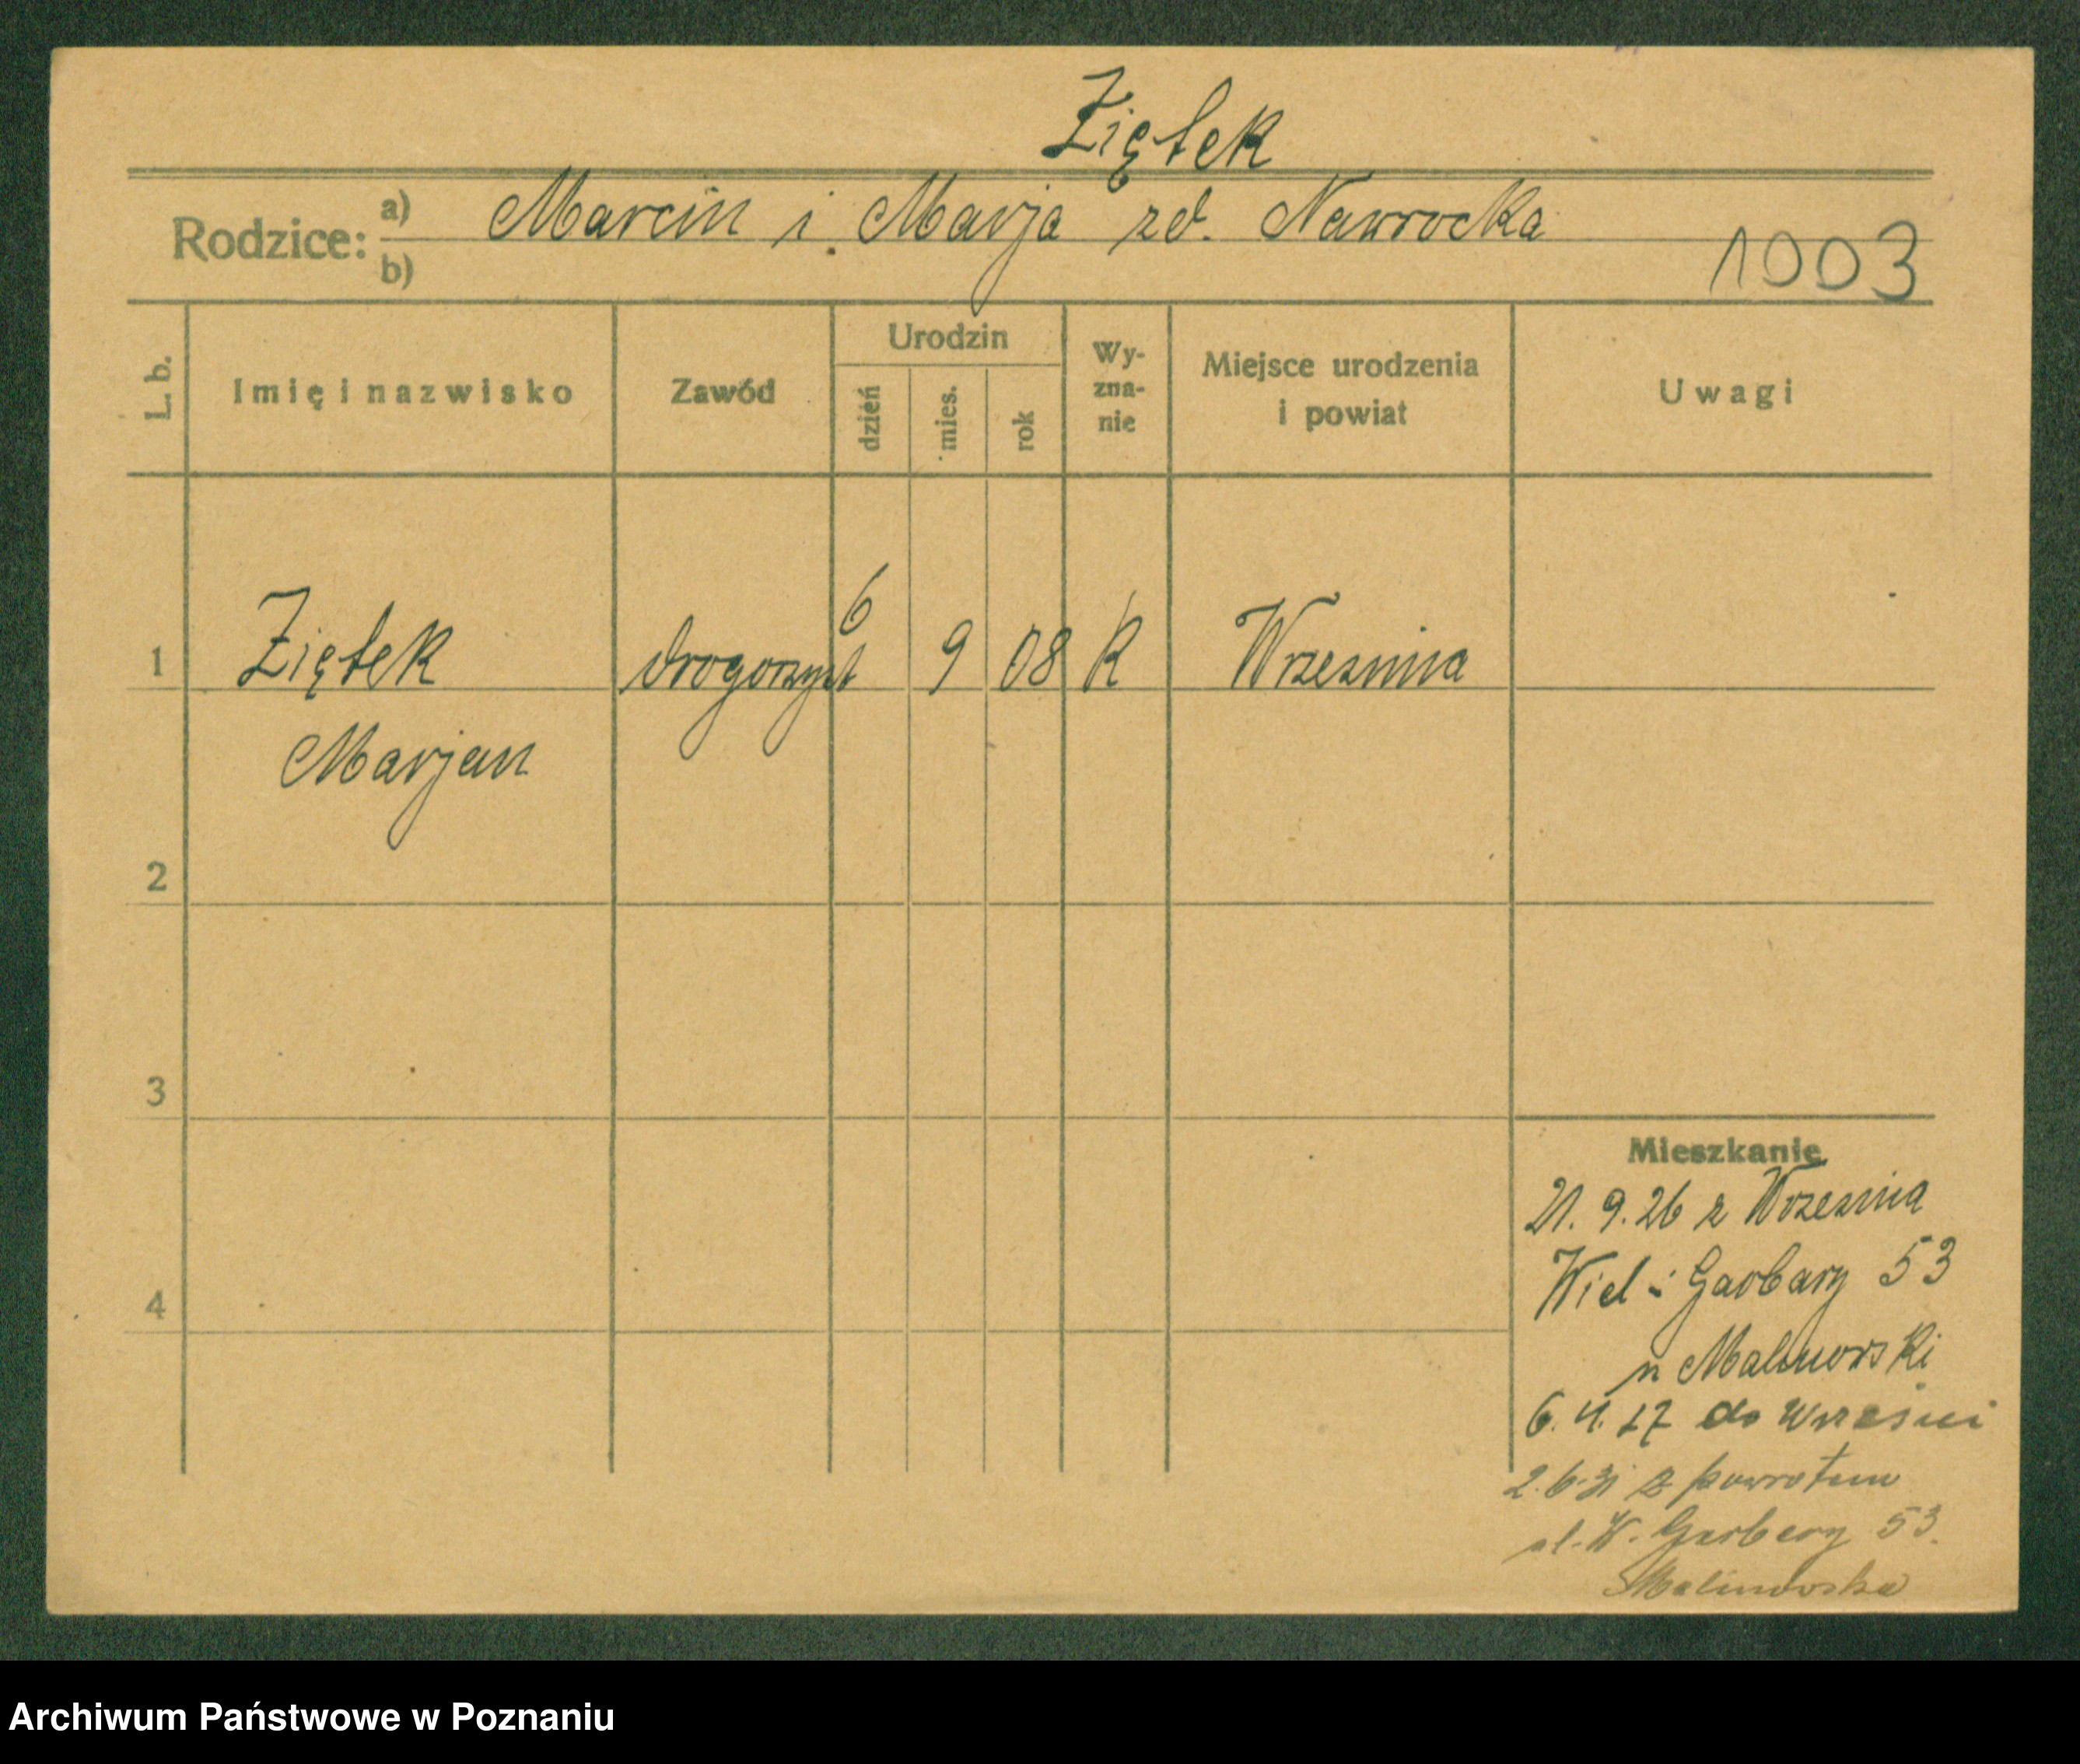 Ziętek
Rodzice: a) Marcin i Marja zd. Nawrocka
b)
1003
L. b.
Imię i nazwisko
Zawód
Urodzin
dzień
mies.
rok
Wy-
zna-
nie
Miejsce urodzenia
i powiat
Uwagi
1 Ziętek drogorzyst 6 9 08 K Wrzesnia
Marjan
2
3
4
Mieszkanie
21. 9. 26 z Wrzesnia
Wiel: Garbary 53
u Malinowski
6. 4. 27 do Wrześni
2. 6. 31 z powrotem
ul. W. Garbary 53.
Malinowska
Archiwum Państwowe w Poznaniu